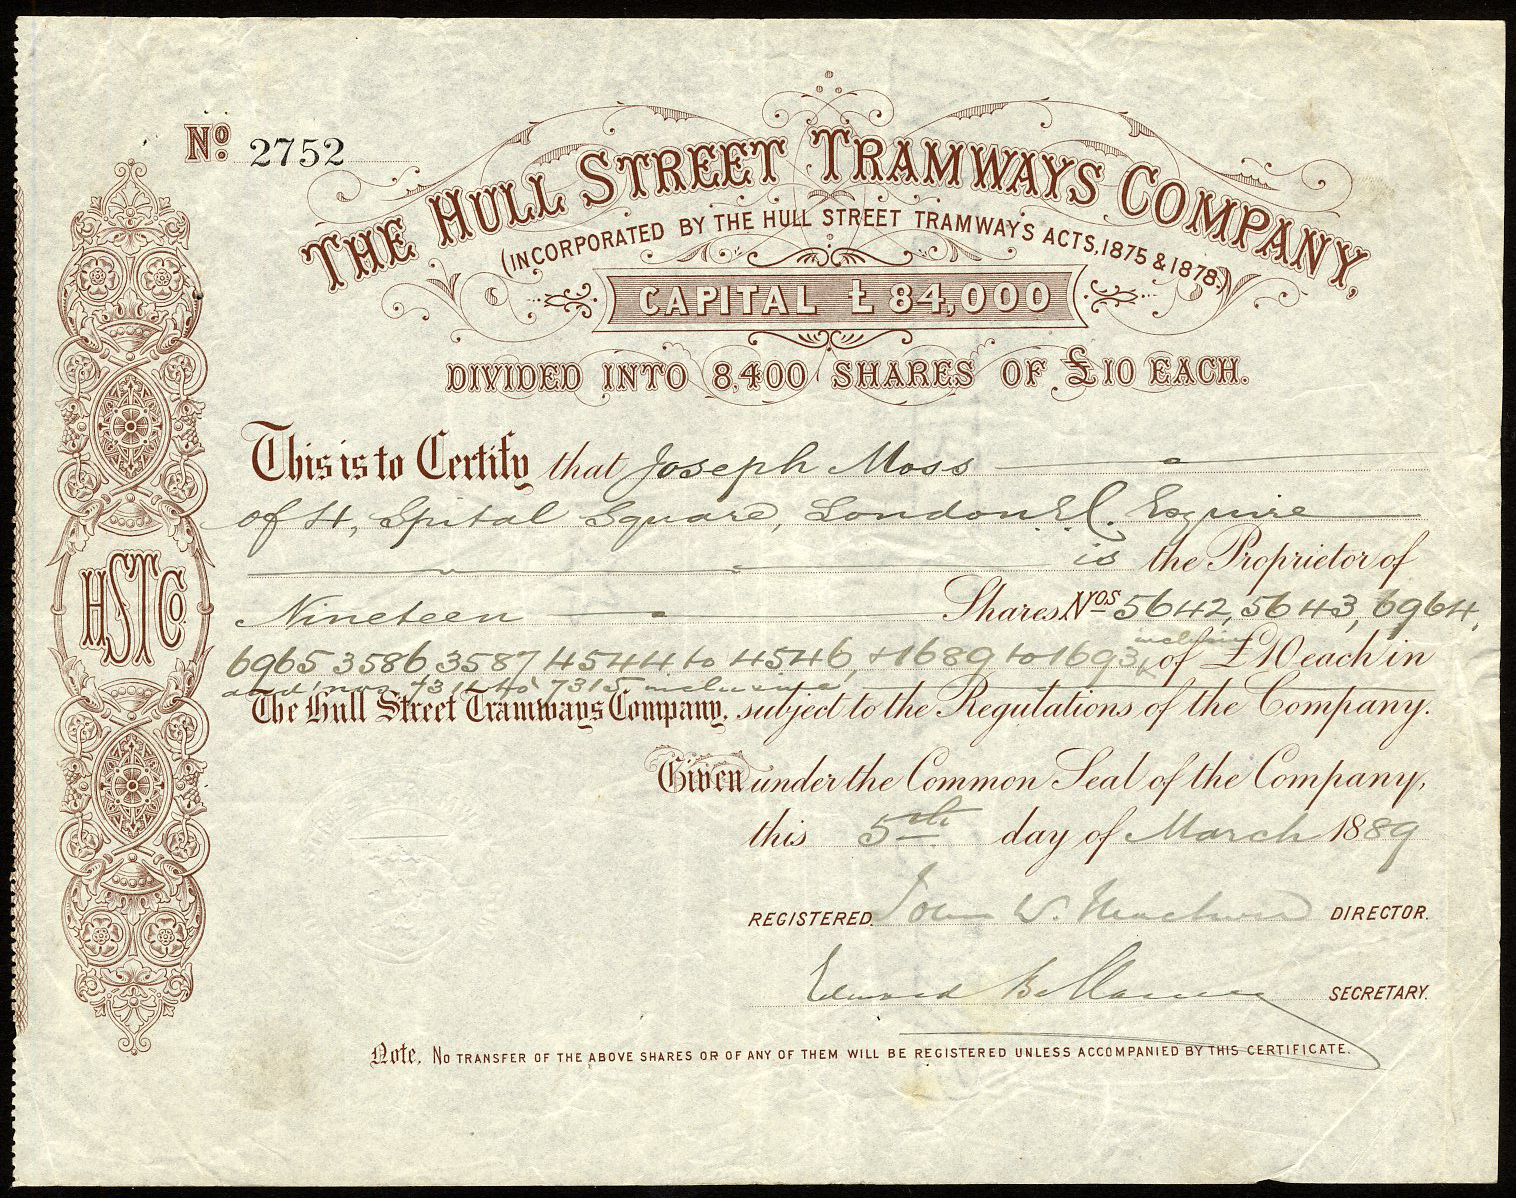 No. 2752
THE HULL STREET TRAMWAYS COMPANY,
(INCORPORATED BY THE HULL STREET TRAMWAYS ACTS, 1875 & 1878.)
CAPITAL £84,000
DIVIDED INTO 8,400 SHARES OF £10 EACH.
This is to Certify that Joseph Moss
of 4, Spital Square, London E.C. Esquire
is the Proprietor of
Nineteen Shares Nos 5642, 5643, 6964,
6965 3586 3587 4544 to 4546, & 1689 to 1693 inclusive of £10 each in
and nos 7311 to 7315 inclusive,
The Hull Street Tramways Company, subject to the Regulations of the Company.
HSTCo.
Given under the Common Seal of the Company,
this 5th day of March 1889
REGISTERED. John W. DIRECTOR.
Edward SECRETARY.
Note. NO TRANSFER OF THE ABOVE SHARES OR OF ANY OF THEM WILL BE REGISTERED UNLESS ACCOMPANIED BY THIS CERTIFICATE.